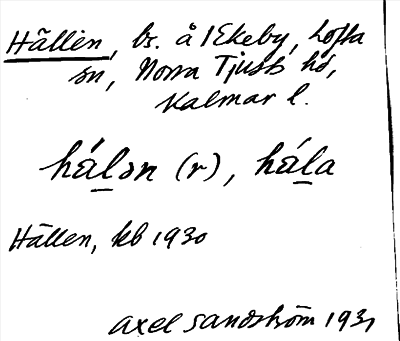 Hällen, bs. å 1 Ekeby, Lofta
sn, Norra Tjusts hd,
Kalmar l.
hálən (r), hála
Hällen, kb 1930
Axel Sandström 1931